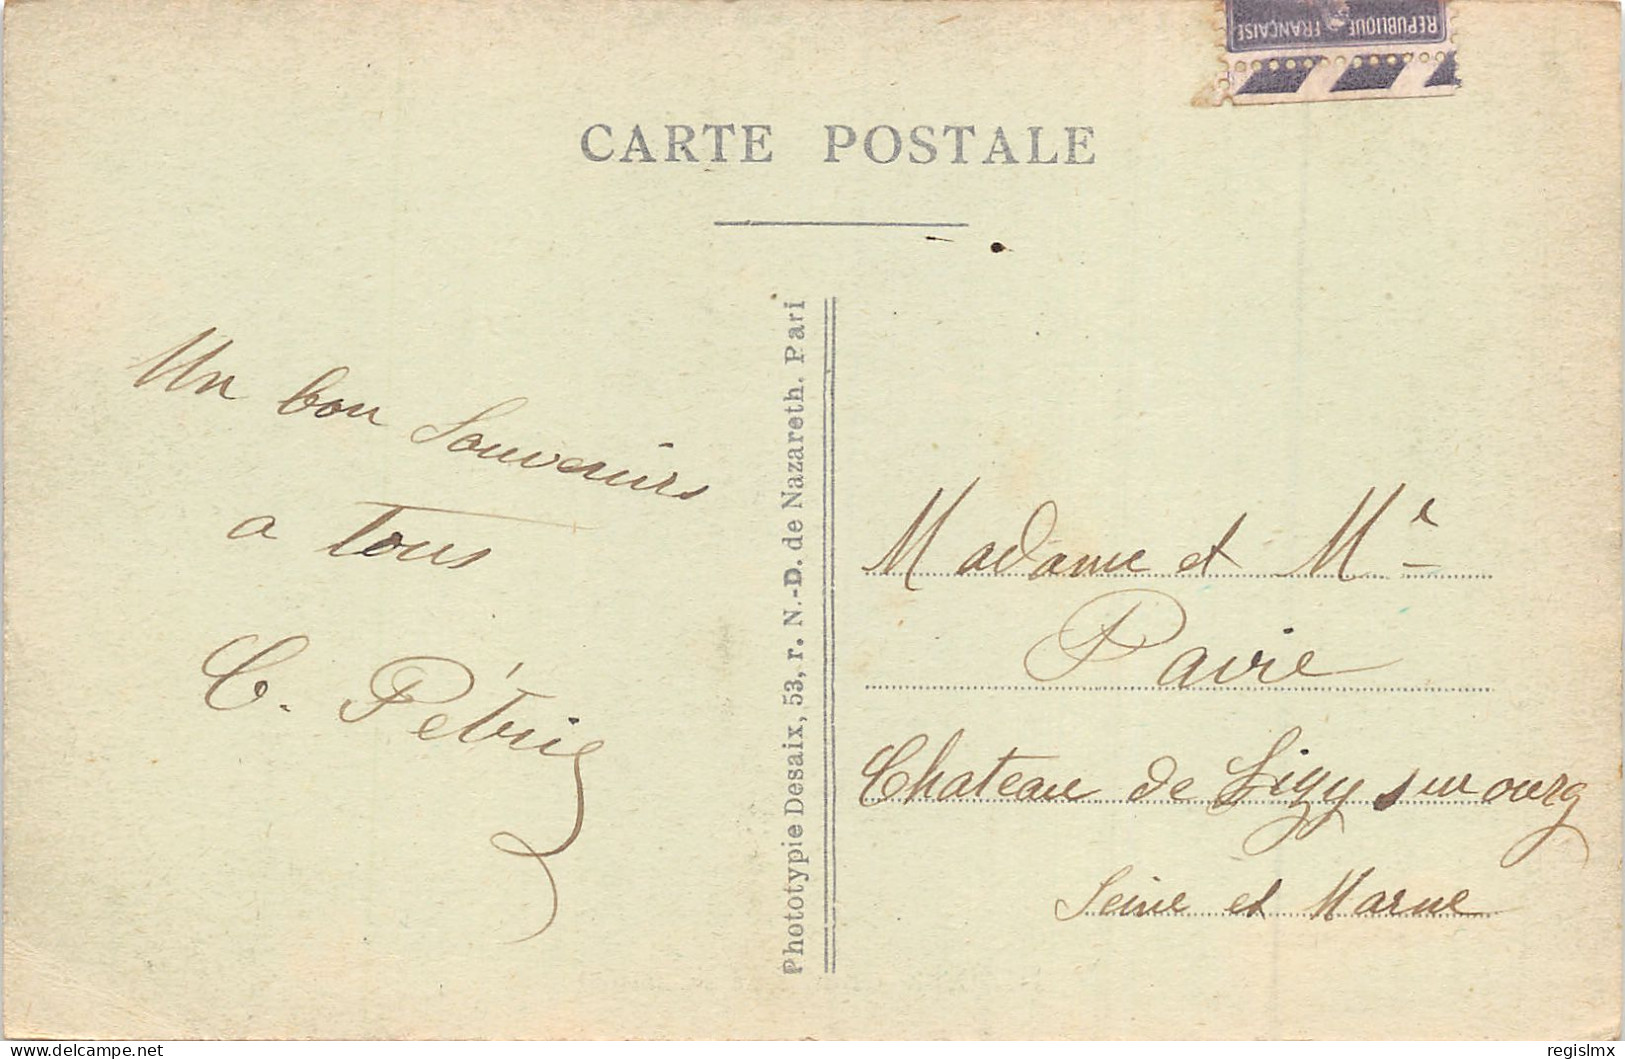 REPUBLIQUE FRANÇAISE
CARTE POSTALE
Un bon Souvenirs
a tous
C. Pétrie
Phototypie Desaix, 53, r. N.-D. de Nazareth. Pari
Madame et Me
Pavie
Chateau de Lizy sur ourq
Seine et Marne
delcampe.net
regislmx